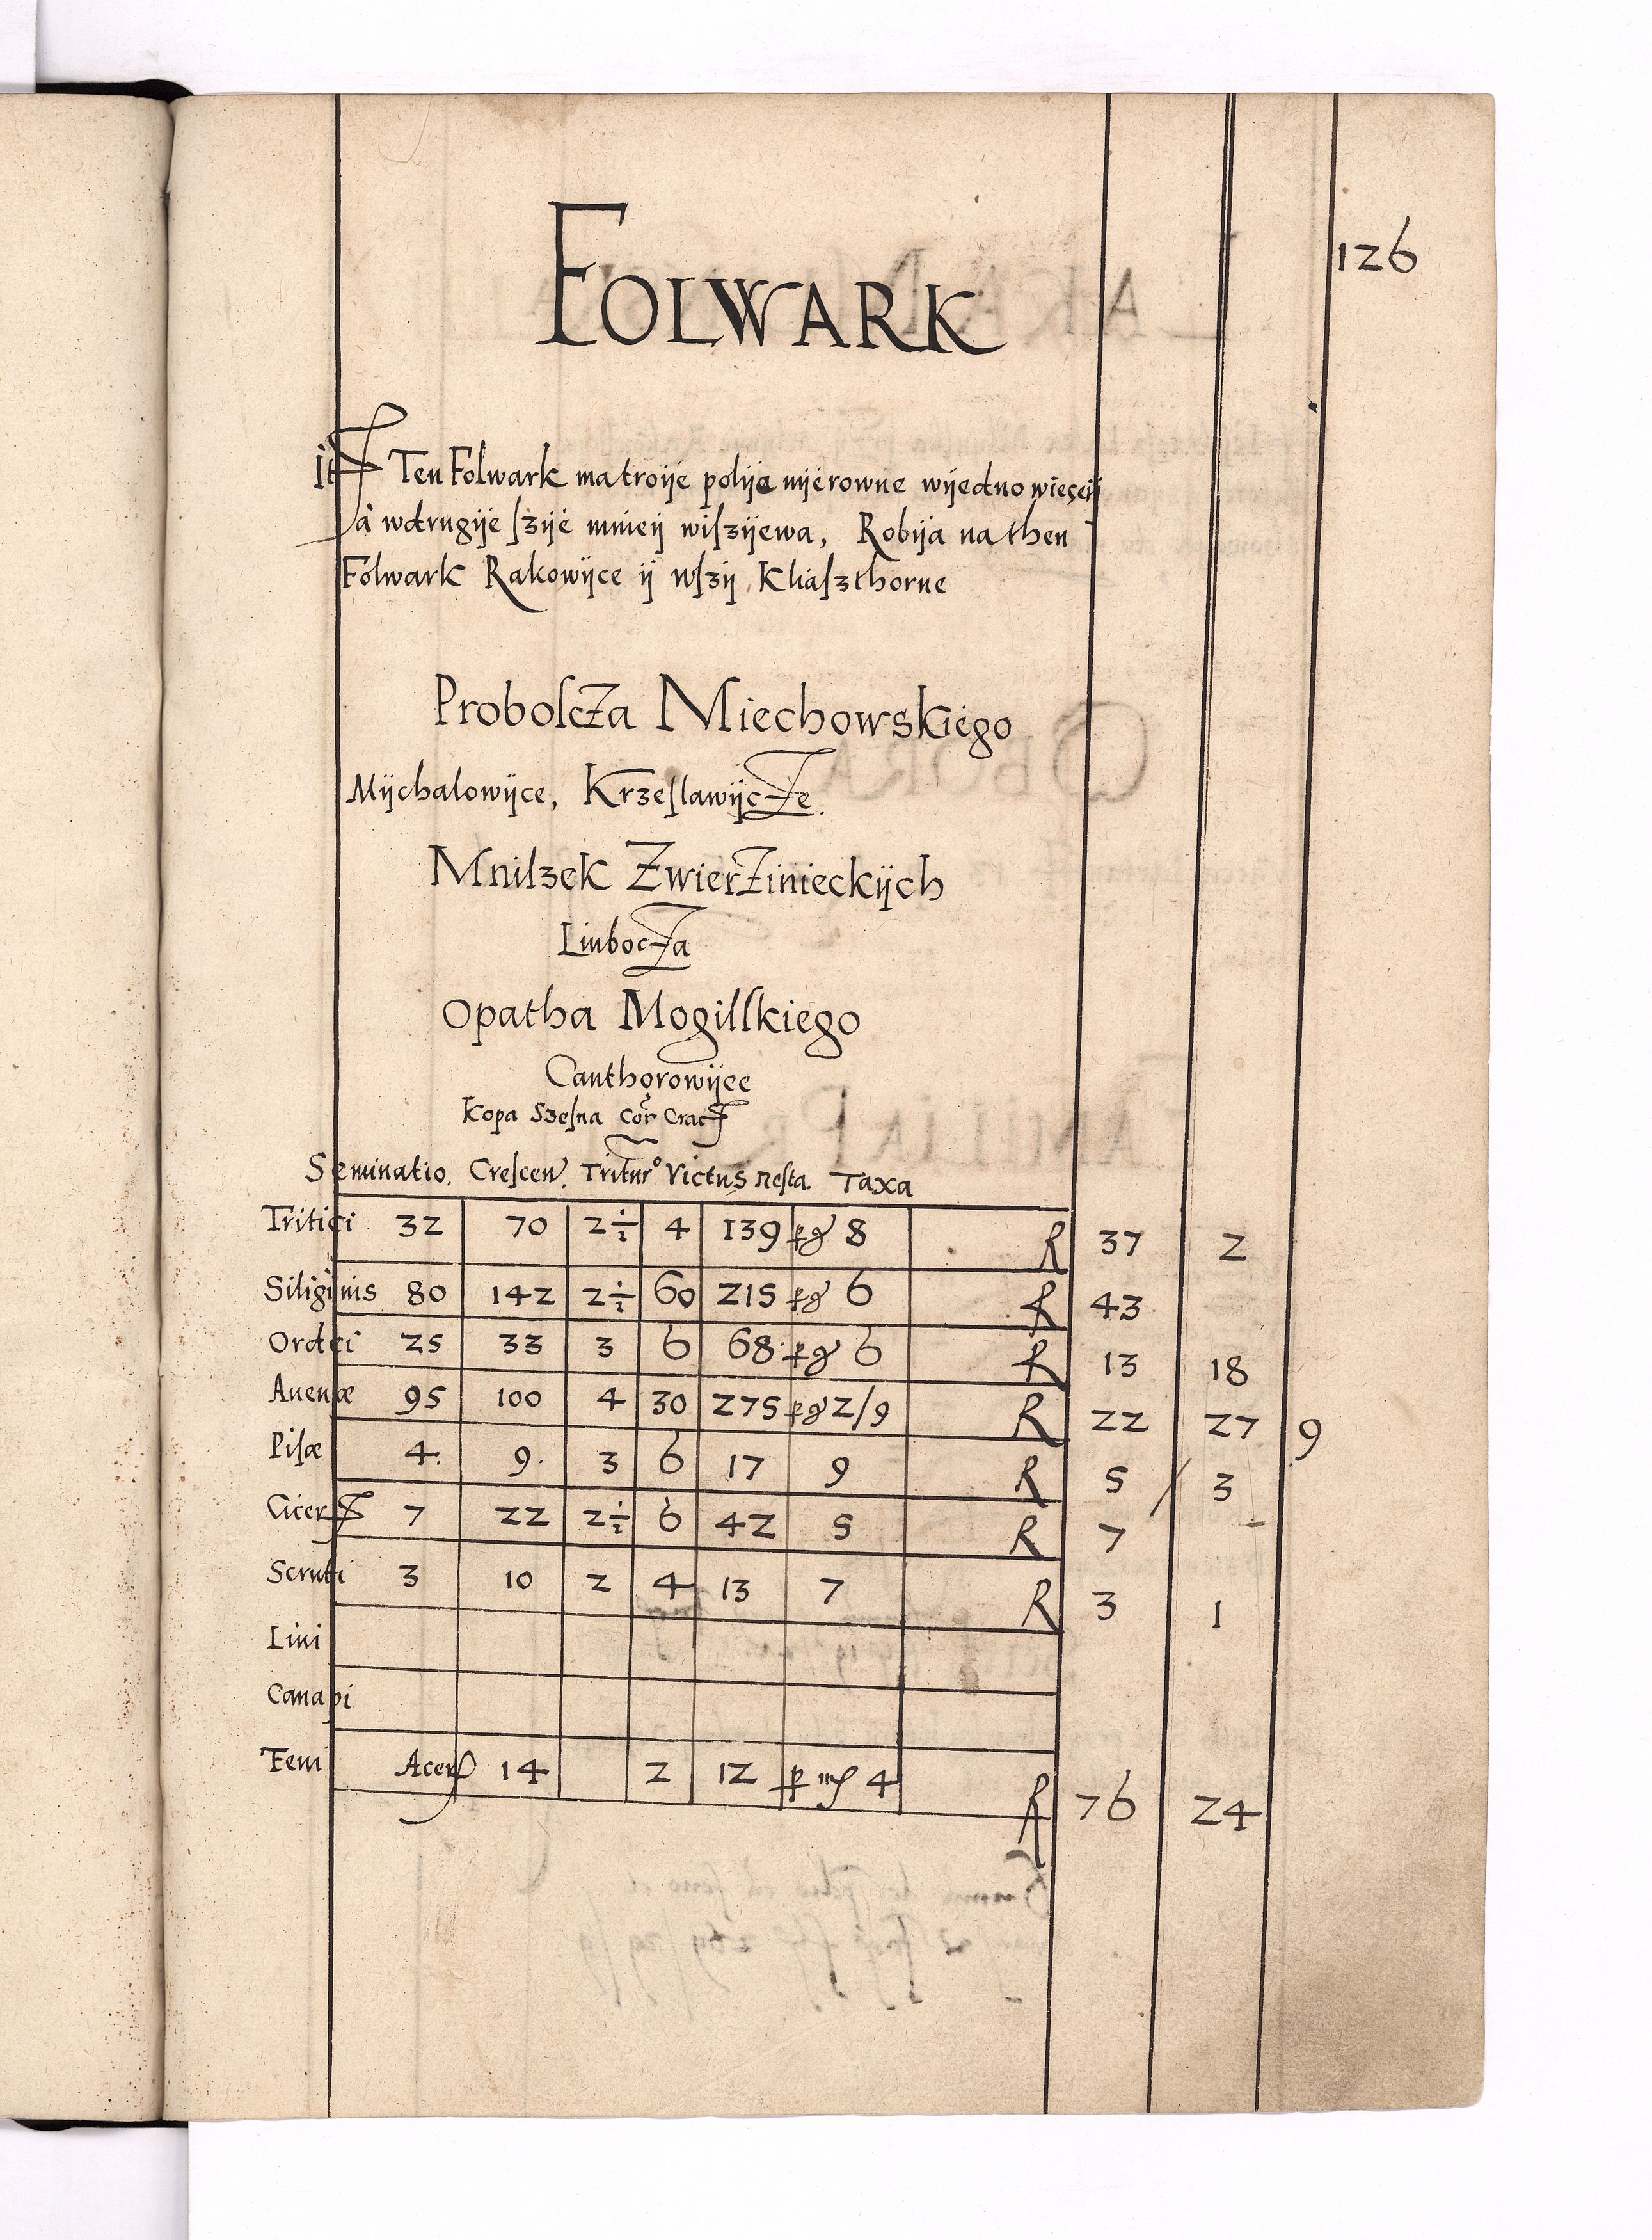 126
FOLWARK
It Ten Folwark ma troije polije nijerowne wijedno wieçeij
à wdrugije ſzijé mnieij wiſzijewa, Robija na then
Folwark Rakowijce ij wſzij Kliaſzthorne
Probolcza Miechowskiego
Mijchalowijce, Krzeſlawijcze.
Mniſzek Zwierzinieckijch
Liubocza
Opatha Mogilſkiego
Canthorowijce
Kopa Szeſna Cor̃ Crac
Seminatio. Creſcen. Tritur° Victus Reſta Taxa
Tritici 32 70 2½ 4 139 p gr 8 R 37 2
Siliginis 80 142 2½ 60 215 p gr 6 R 43
Ordei 25 33 3 6 68 p gr 6 R 13 18
Auenæ 95 100 4 30 275 p gr 2/9 R 22 27 9
Piſæ 4. 9. 3 6 17 9 R 5 / 3
Cicer 7 22 2½ 6 42 5 R 7
Scruti 3 10 2 4 13 7 R 3 1
Lini
Canapi
Feni Acer 14 2 12 p 4 R 76 24